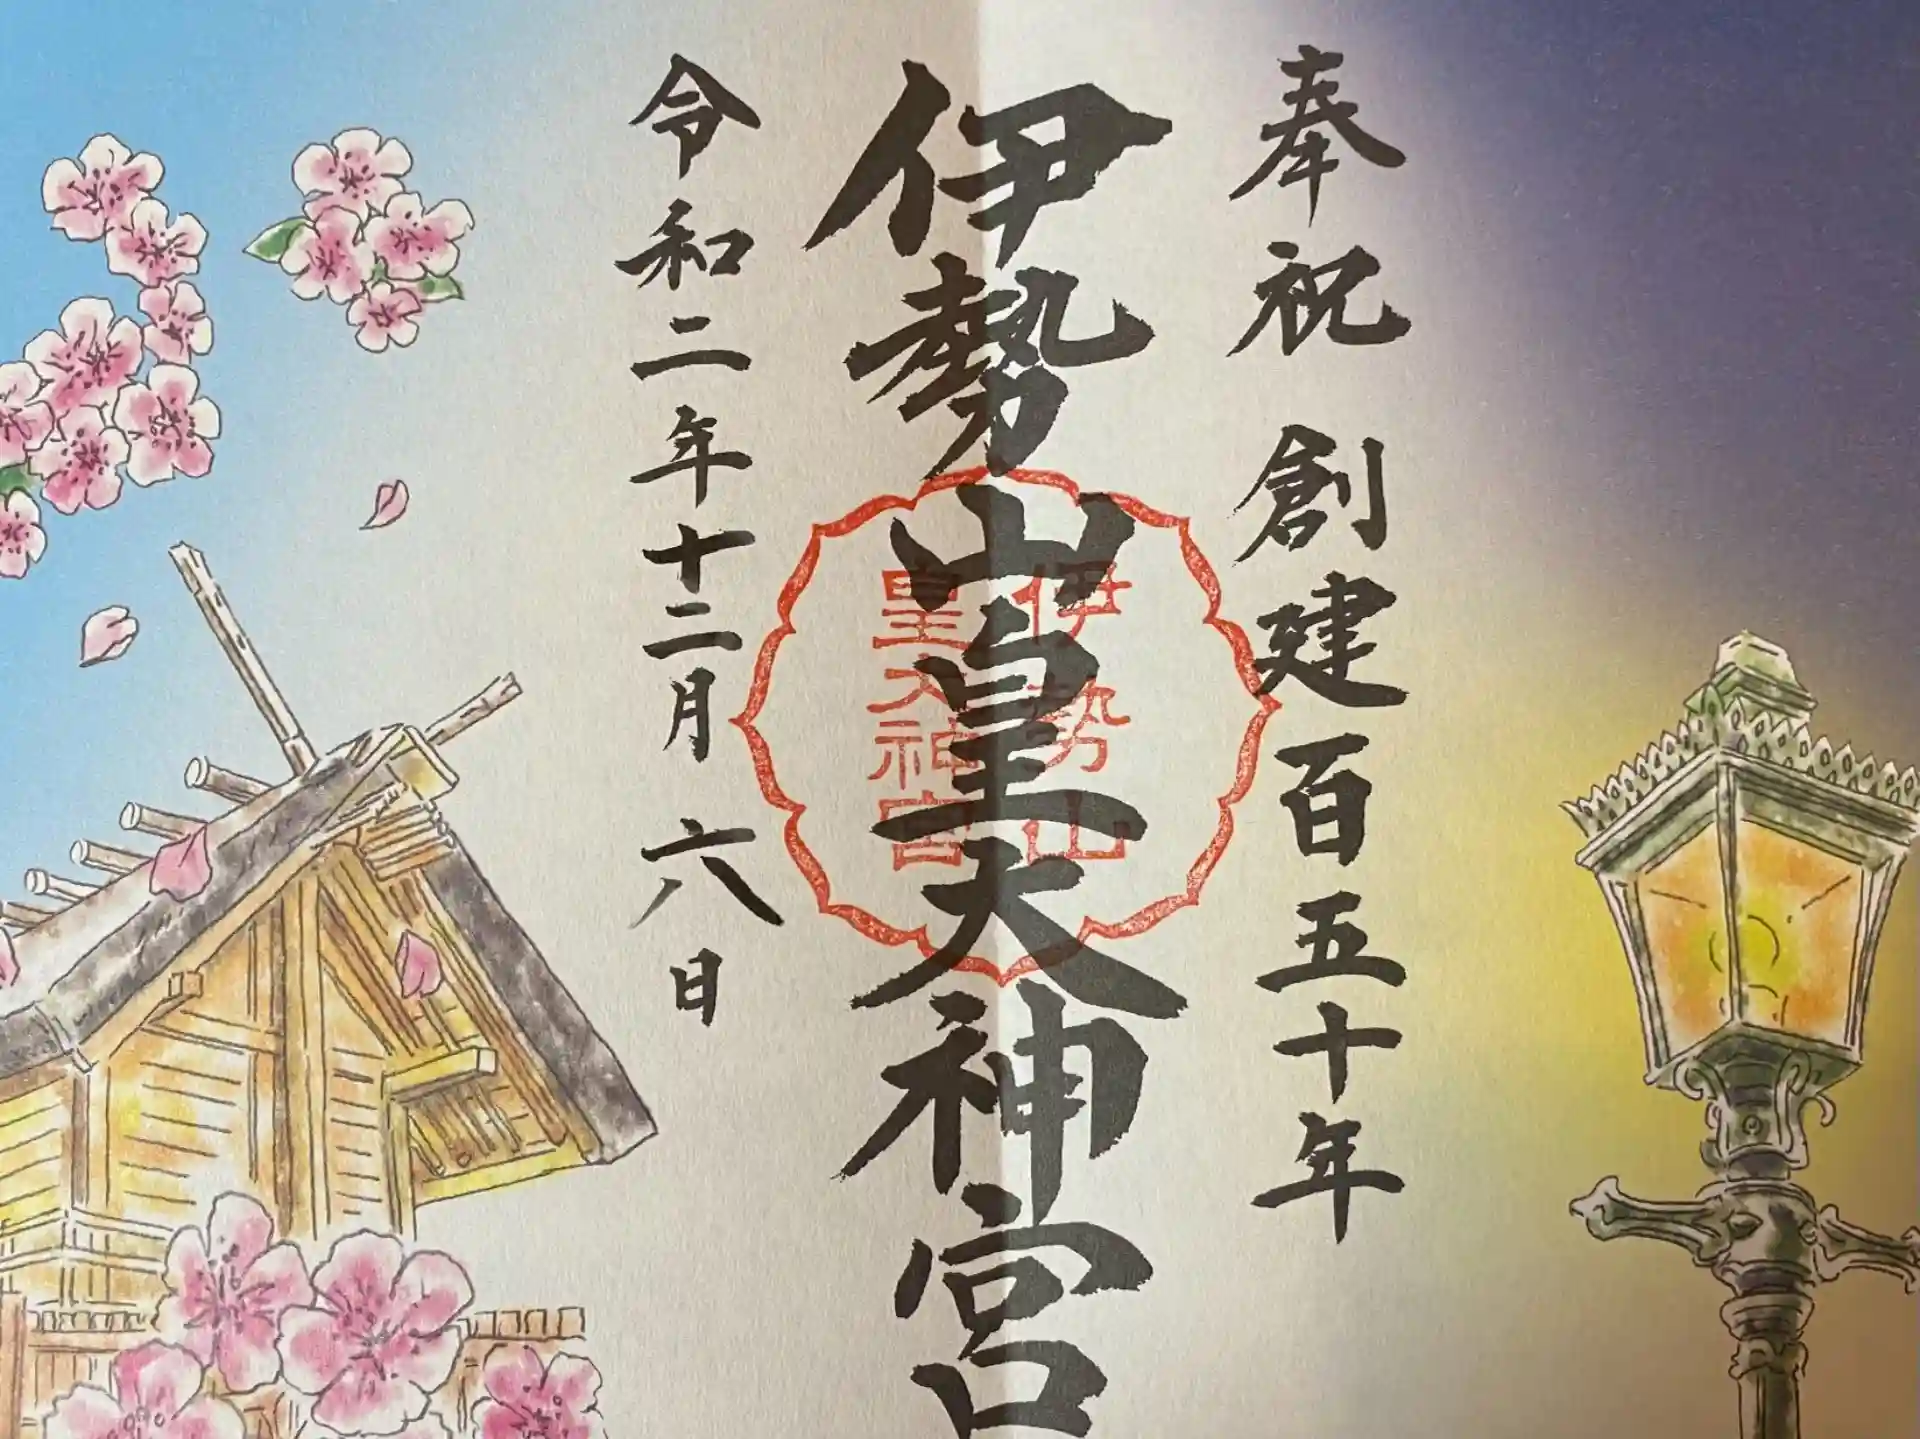 奉祝 創建百五十年
伊勢山皇大神宮
伊勢山
皇大神宮
令和二年十二月六日